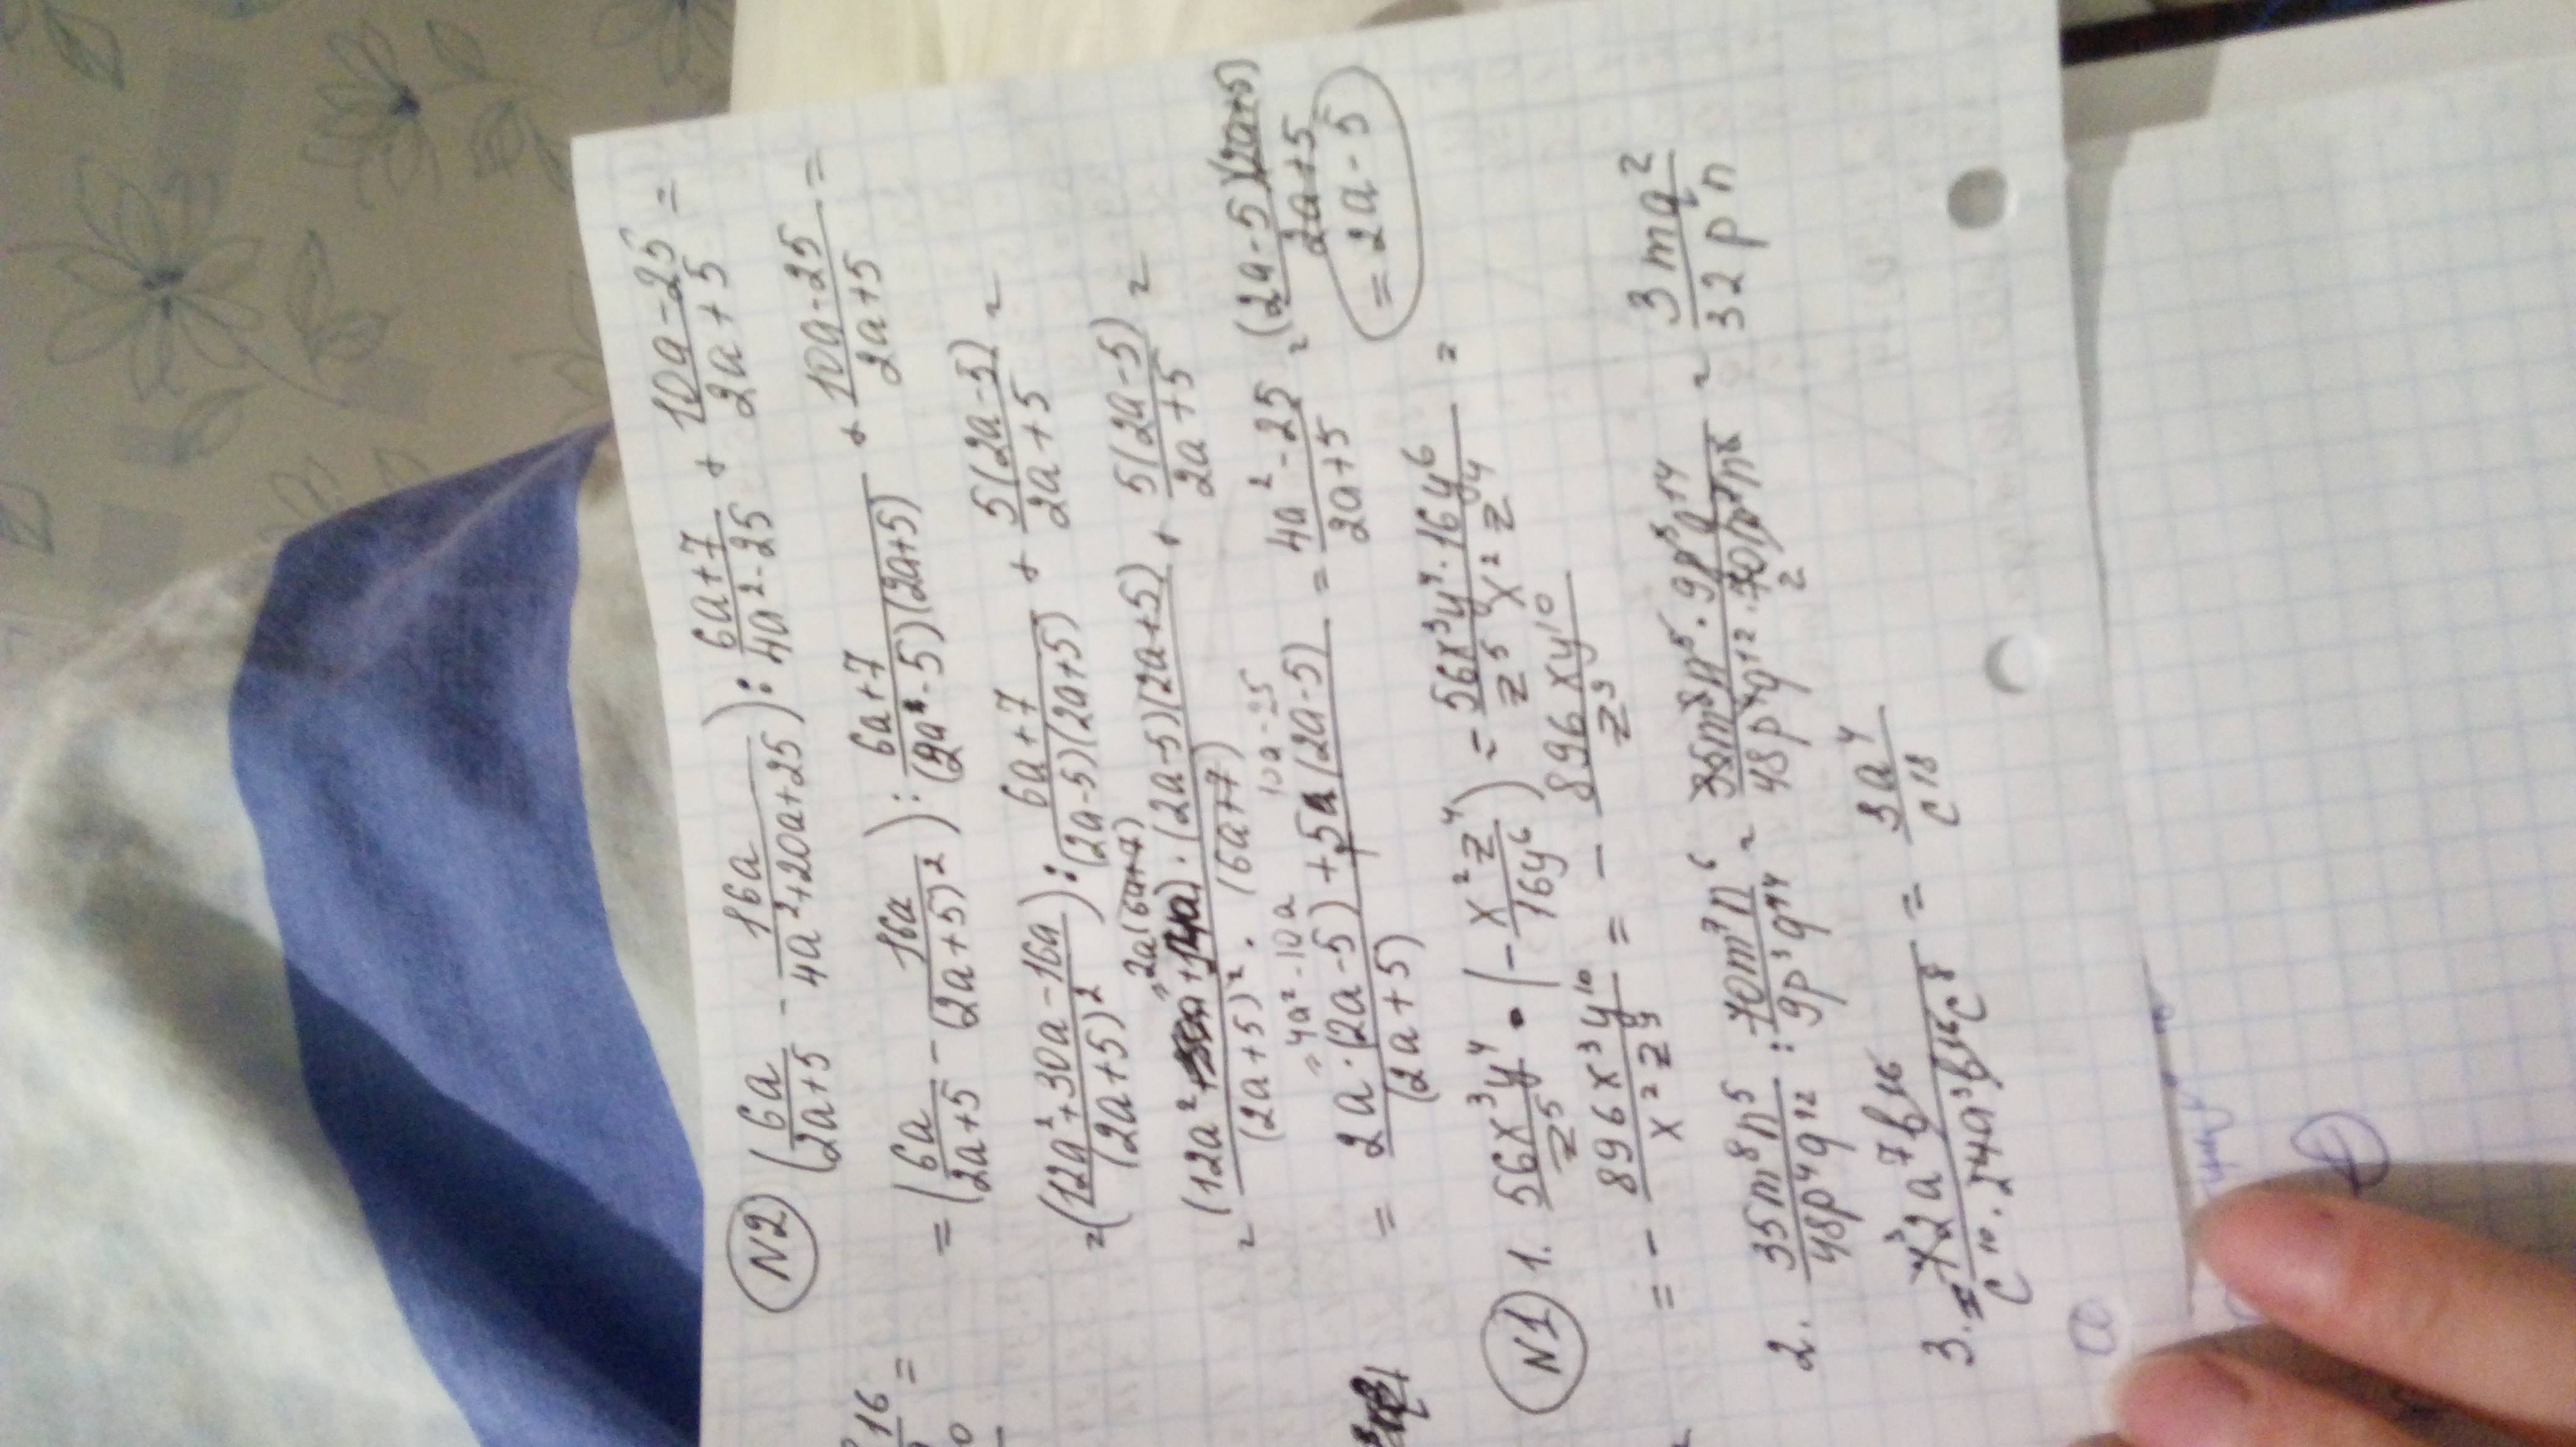 N2 (6a/(2a+5) - 16a/(4a²+20a+25)) : (6a+7)/(4a²-25) + (10a-25)/(2a+5) =
= (6a/(2a+5) - 16a/(2a+5)²) : (6a+7)/((2a-5)(2a+5)) + (10a-25)/(2a+5) =
= ((12a²+30a-16a)/(2a+5)²) : (6a+7)/((2a-5)(2a+5)) + 5(2a-5)/(2a+5) =
"2a(6a+7)
= (12a²+14a)·(2a-5)(2a+5)/((2a+5)²·(6a+7)) + 5(2a-5)/(2a+5) =
"4a²-10a 10a-25
= (2a·(2a-5)+5(2a-5))/(2a+5) = (4a²-25)/(2a+5) = (2a-5)(2a+5)/(2a+5) =
= 2a-5
N1 1. 56x³y⁴/z⁵ · (- x²z⁴/16y⁶) = 56x³y⁴·16y⁶/z⁵x²z⁴ =
= - 896x³y¹⁰/x²z⁹ = - 896xy¹⁰/z⁹
2. 35m⁸n⁵/48p⁴q¹² : 70m⁷n⁶/9p³q¹⁴ = 35m⁸n⁵·9p³q¹⁴/48p⁴q¹²·70m⁷n⁶ = 3mq²/32pn
2
3. = 72a⁷b¹⁶/c¹⁰·24a³b¹⁶c⁸ = 3a⁴/c¹⁸
3
16
=